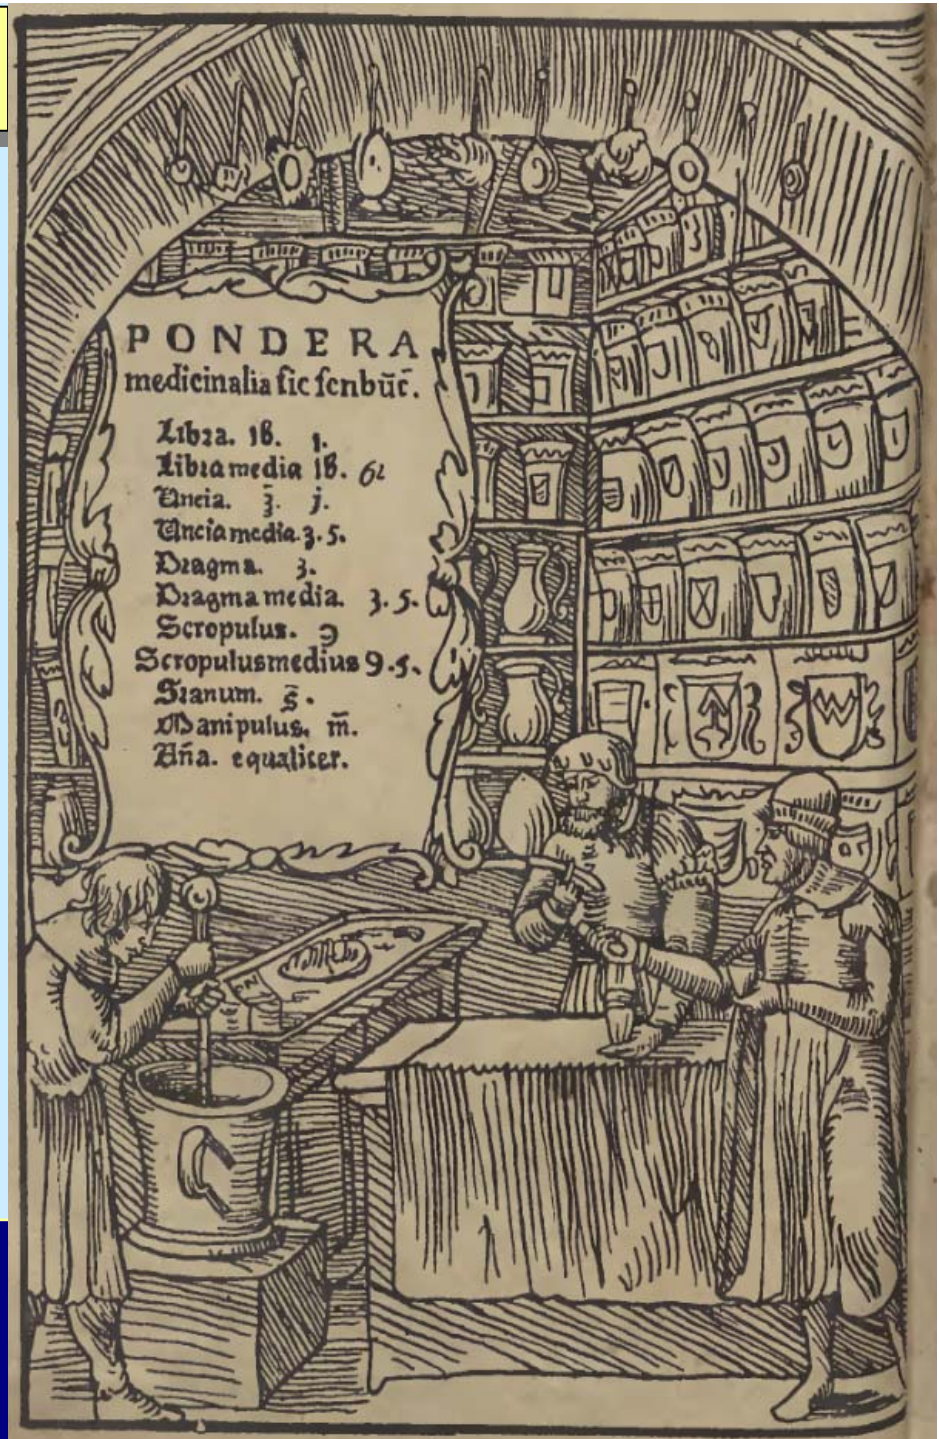 PONDERA
medicinalia sic scribūt̄.
Libra. lb. j.
Libra media lb. 6ι
Uncia. ʒ̄. j.
Uncia media. ʒ. 5.
Dragma. ʒ.
Dragma media. ʒ. 5.
Scropulus. ℈
Scropulus medius ℈. 5.
Granum. ḡ.
Manipulus. m̄.
An̄a. equaliter.